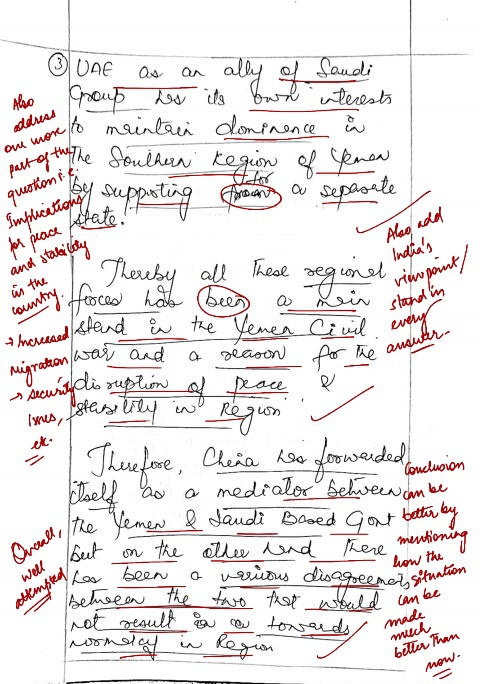 ③ UAE as an ally of Saudi
Group has its own interests
to maintain dominence in
the Southern Region of Yemen
for
by supporting a separate
state.
Thereby all these regional
forces has been a main
stand in the Yemen Civil
war and a reason for the
disruption of peace &
stability in Region.
Therefore, China has forwarded
itself as a mediator between
the Yemen & Saudi Based Govt
but on the other hand there
has been a various disagreements
between the two that would
not result in a towards
normacy in Region
Also
address
one more
part of the
question i.e.
Implications
for peace
and stability
in the
country.
→ Increased
migration
→ security
issues,
etc.
Overall,
well
attempted
Also add
India's
viewpoint/
stand in
every
answer.
Conclusion
can be
better by
mentioning
how the
situation
can be
made
much
better than
now.